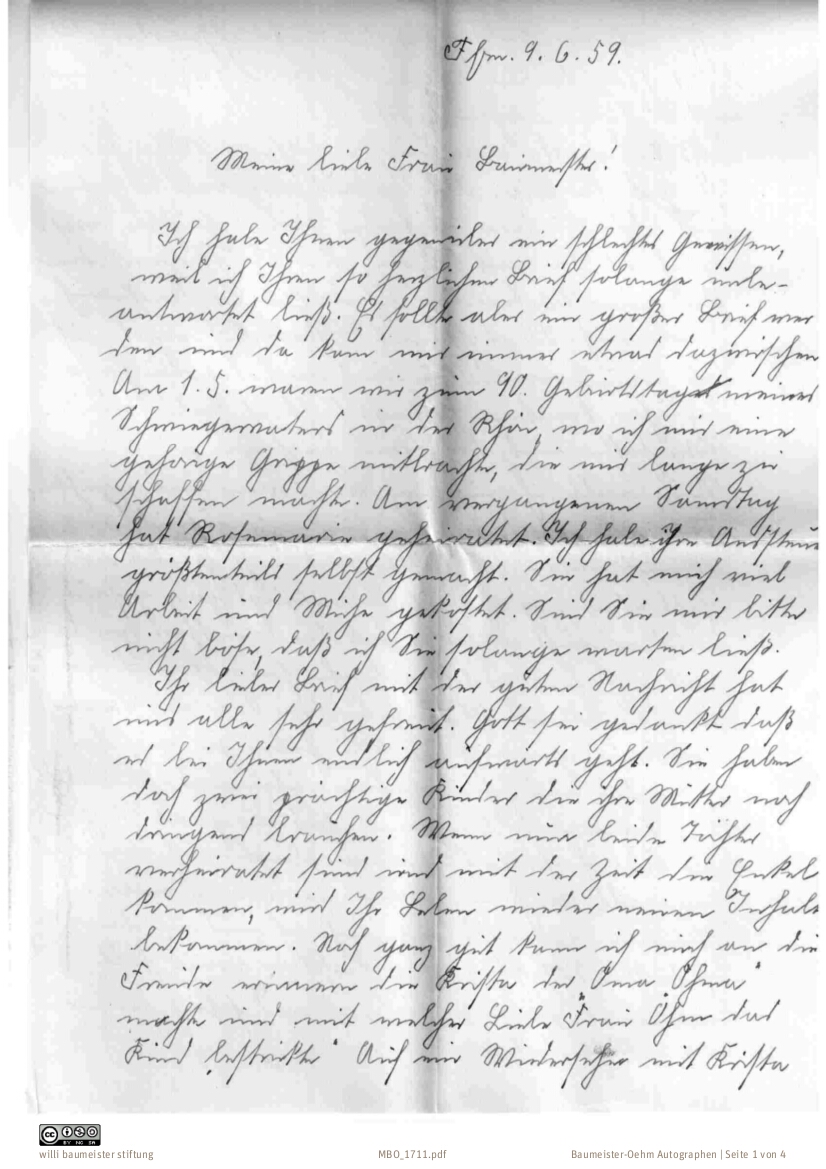 Ffm. 9. 6. 59.
Meine liebe Frau Baumeister!
Ich habe Ihnen gegenüber ein schlechtes Gewissen,
weil ich Ihren so herzlichen Brief solange unbe-
antwortet ließ. Es sollte aber ein großer Brief wer
den und da kam mir immer etwas dazwischen
Am 1. 5. waren wir zum 90. Geburtstage meines
Schwiegervaters in der Rhön, wo ich mir eine
gehörige Grippe mitbrachte, die mir lange zu
schaffen machte. Am vergangenen Samstag
hat Rosemarie geheiratet. Ich habe ihre Aussteue
größtenteils selbst gemacht. Sie hat mich viel
Arbeit und Mühe gekostet. Sind Sie mir bitte
nicht böse, daß ich Sie solange warten ließ.
Ihr lieber Brief mit der guten Nachricht hat
uns alle sehr gefreut. Gott sei gedankt daß
es bei Ihnen endlich aufwärts geht. Sie haben
doch zwei prächtige Kinder die ihre Mutter noch
dringend brauchen. Wenn nun beide Töchter
verheiratet sind und mit der Zeit die Enkel
kommen, wird Ihr Leben wieder neuen Inhalt
bekommen. Noch ganz gut kann ich mich an die
Freude erinnern die Krista der "Oma Öhma"
machte und mit welcher Liebe "Frau Öhm das
Kind "bestrickte" Auf ein Wiedersehen mit Krista
CC BY NC SA
willi baumeister stiftung
MBO_1711.pdf
Baumeister-Oehm Autographen | Seite 1 von 4